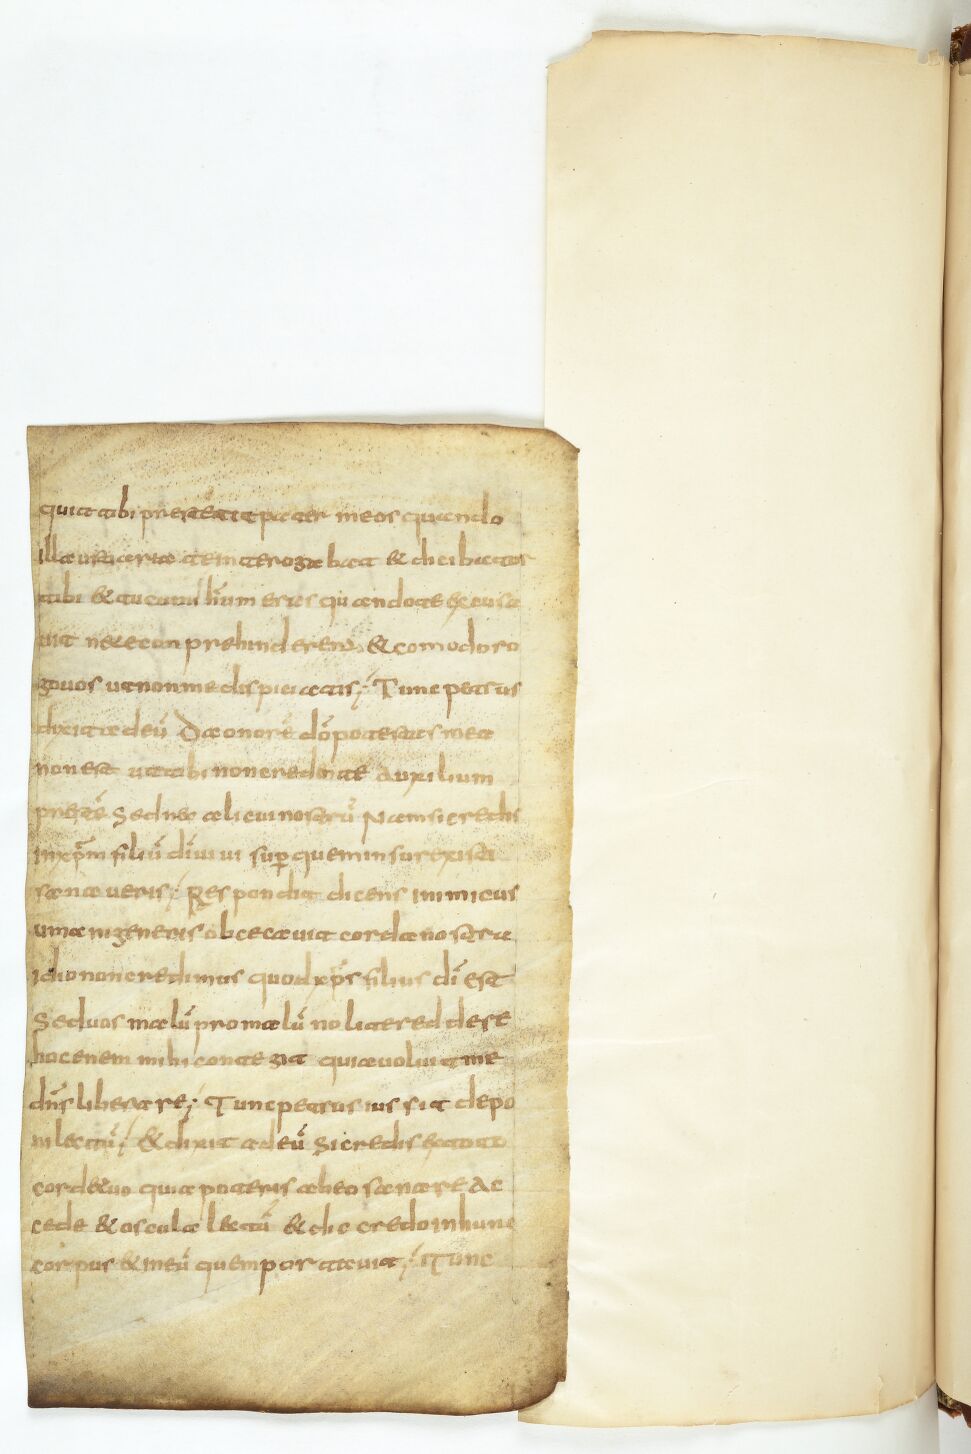 quia tibi prestetit pater meos quando
illa uenaria te interogabat & dicibat os
tibi & tu cum illum eras quando te excusa
uit ne te conprehunderen & comodo ro
go uos ut non me dispiciatis; Tunc petrus
dixit ad eū Da onorē dō potestas mea
non est ut tibi non credente auxilium
prestē Sed nec alicui nostrū Nam si credis
in xp̄m filiū dī uiui sup quem insurexisti
sanaueris; Respondit dicens inimicus
umani generis obcecauit corda nostra
idio non credimus quod xp̄s filius dī est
Sed uos malū pro malū nolite reddere
hoc enem mihi contegit quia uolui te
dn̄s liberare; Tunc petrus iussit depo
ni lectū; & dixit ad eū Si credis ex toto
corde tuo quia poteris ab eo sanare Ac
cede & oscula lectū & dic credo in hunc
corpus & in eū quem portauit; Tunc